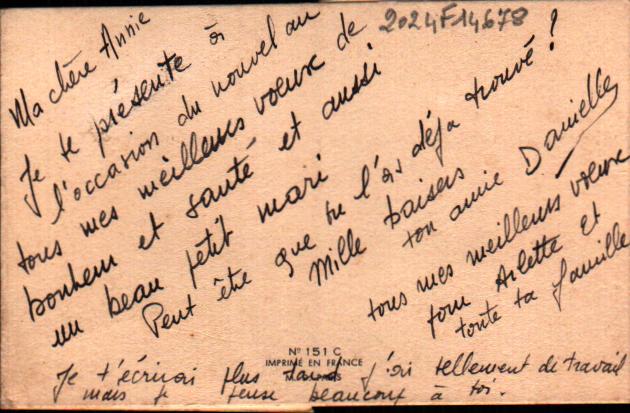 2024F14678
Ma chère Annie
Je te présente à
l'occasion du nouvel an
tous mes meilleurs voeux de
bonheur et santé et aussi
un beau petit mari
Peut être que tu l'as déja trouvé !
Mille baisers
ton amie Danielle
tous mes meilleurs voeux
pour Arlette et
toute ta famille
No 151 C
IMPRIMÉ EN FRANCE
Je t'écrirai plus tard j'ai tellement de travail
mais je pense beaucoup à toi.